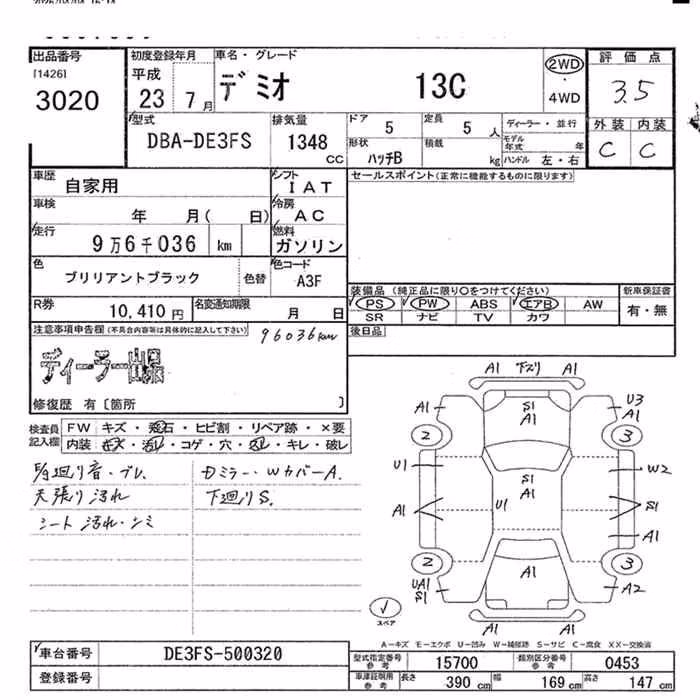 出品番号
[1426]
3020
初度登録年月
平成
23 7月
車名・グレード
デミオ 13C
2WD
・
4WD
評価点
3.5
外装 内装
C C
型式
DBA-DE3FS
排気量
1348
CC
ドア 5
定員 5 人
形状
ハッチB
積載
kg
ディーラー・並行
モデル年式 年
ハンドル 左・右
車歴 自家用
シフト
IAT
車検 年 月( 日)
冷房
AC
走行
9万6千036 km
燃料
ガソリン
色
ブリリアントブラック
色替
色コード
A3F
R券
10,410円
名変通知期限
月 日
セールスポイント(正常に機能するものに限ります)
装備品 (純正品に限り○をつけてください)
PS PW ABS エアB AW
SR ナビ TV カワ
新車保証書
有・無
後日品
注意事項申告欄(不具合内容等は具体的に記入して下さい)
96036km
ディーラー出品
修復歴 有〔箇所 〕
検査員
記入欄
FW キズ・飛石・ヒビ割・リペア跡・×要
内装 キズ・汚レ・コゲ・穴・凹レ・キレ・破レ
下廻り音・ブレ.
天張り汚れ
シート汚れ・シミ
Dミラー・WカバーA.
下廻りS.
A1 下スリ A1
A1 S1 A1 U3 A1
2 3
U1 W2
S1
A1
A1 U1 S1
A1
2 3
UA1
S1
A1
A2
✓
スペア
A1 A1
A-キズ E-エクボ U-凹み W-補修跡 S-サビ C-腐食 XX-交換済
車台番号 DE3FS-500320
登録番号
型式指定番号
参考
15700
類別区分番号
参考
0453
車庫証明用
参考
長さ 390 cm
幅 169 cm
高さ 147 cm